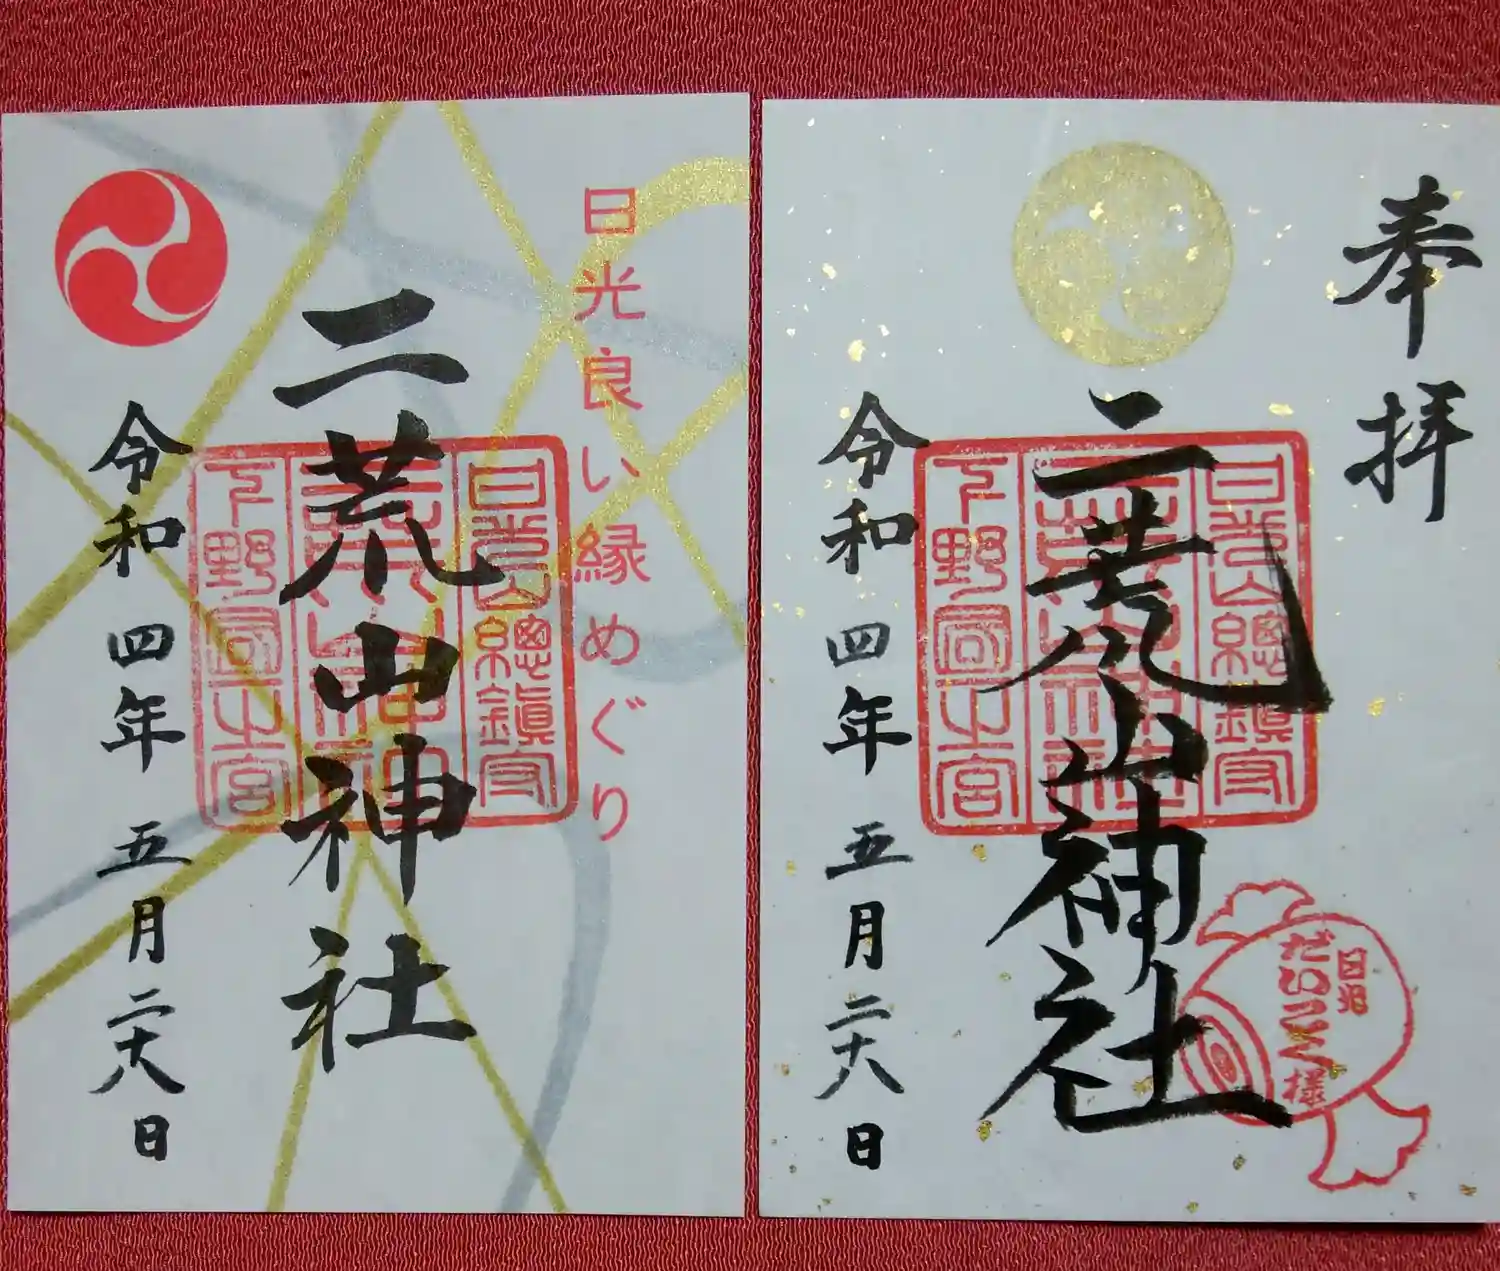 奉拝
二荒山神社
令和四年五月二十八日
日光山總鎮守
二荒山神社
下野國一之宮
日光だいこく様
日光良い縁めぐり
二荒山神社
令和四年五月二十八日
日光山總鎮守
二荒山神社
下野國一之宮